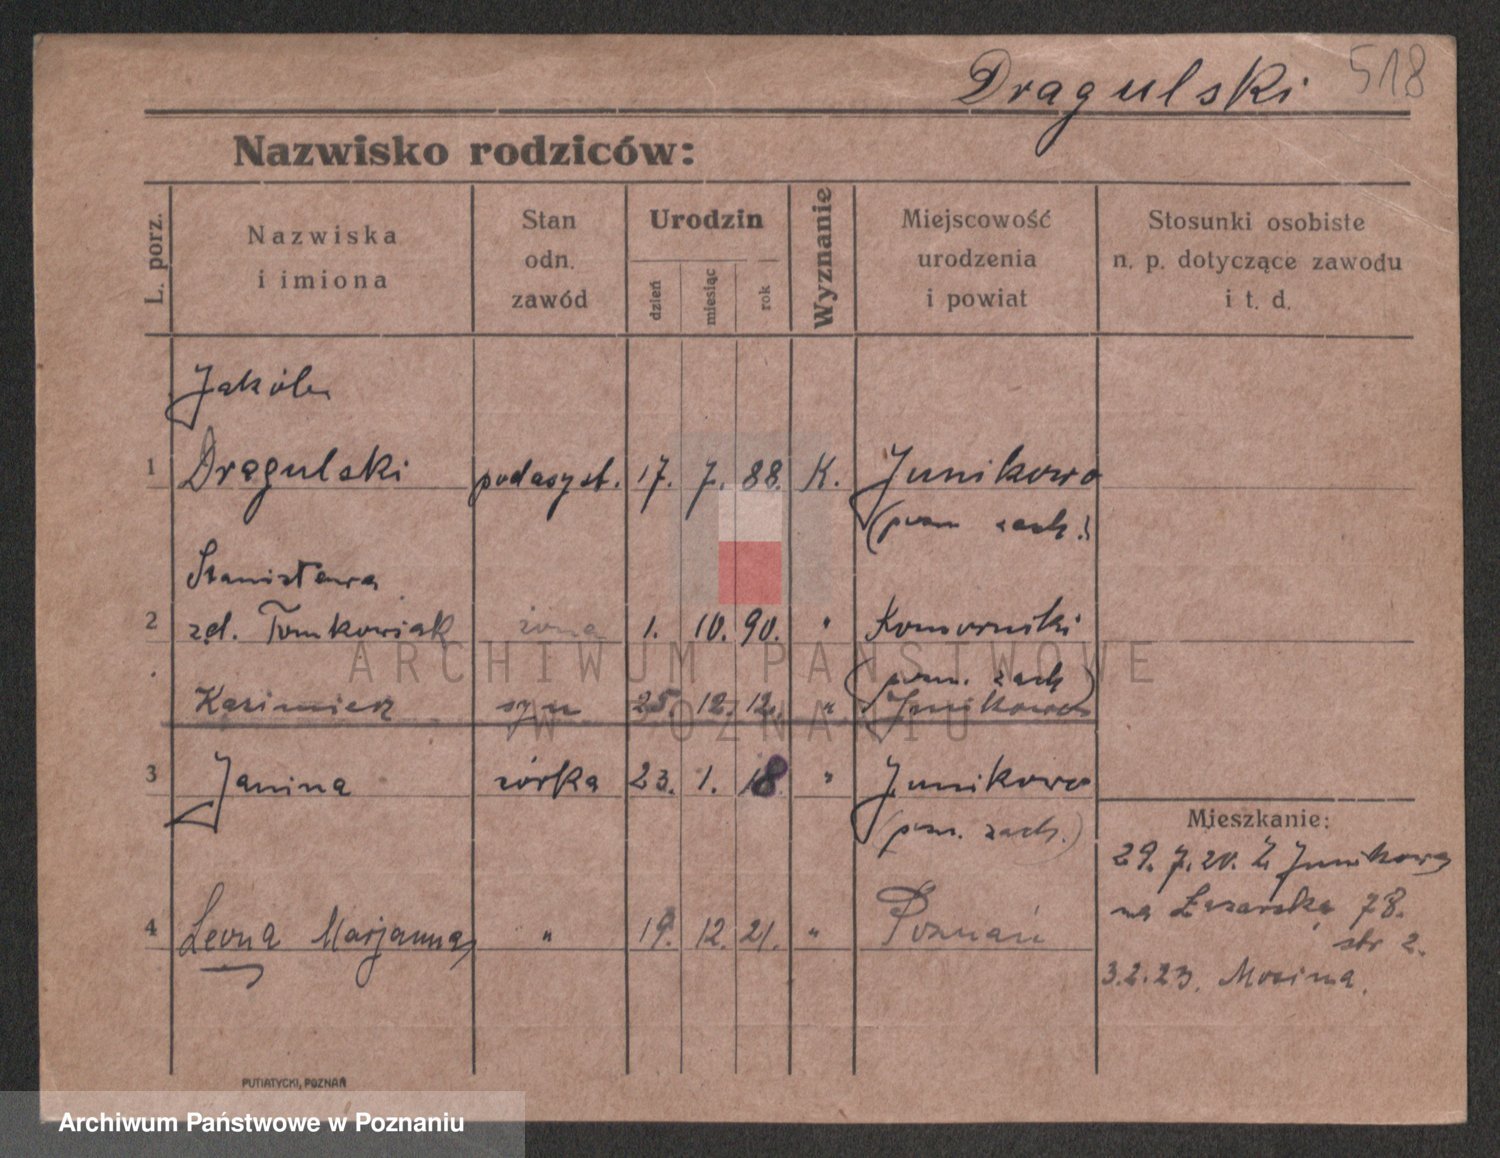 Dragulski 518
Nazwisko rodziców:
L. porz.
Nazwiska
i imiona
Stan
odn.
zawód
Urodzin
dzień
miesiąc
rok
Wyznanie
Miejscowość
urodzenia
i powiat
Stosunki osobiste
n. p. dotyczące zawodu
i t. d.
Jakób
1 Dragulski podasyst. 17. 7. 88. K. Junikowo
(pozn zach.)
Stanisława
2 zd. Tomkowiak żona 1. 10. 90. " Komorniki
(pozn. zach)
Kazimierz syn 25. 12. 12. " Junikowo
3 Janina córka 23. 1. 18. " Junikowo
(pozn. zach.)
4 Leona Marjanna " 19. 12. 21. " Poznań
Mieszkanie:
29. 7. 20. Z Junikowa
na Łazarska 78.
str 2.
3.2.23. Mosina.
PUTIATYCKI, POZNAŃ
ARCHIWUM PAŃSTWOWE
W POZNANIU
Archiwum Państwowe w Poznaniu